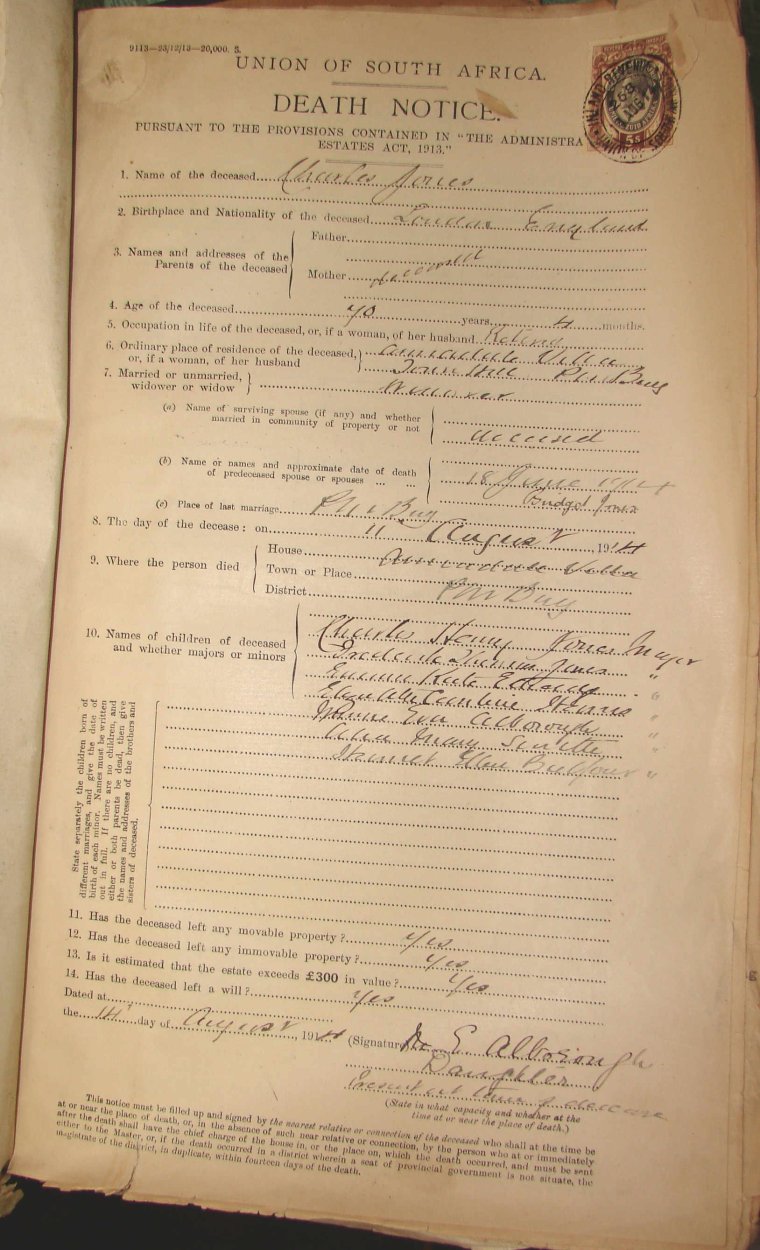 9113—23/12/13—20,000. S.
UNION OF SOUTH AFRICA.
DEATH NOTICE.
PURSUANT TO THE PROVISIONS CONTAINED IN "THE ADMINISTRA
ESTATES ACT, 1913."
INLAND REVENUE
1. Name of the deceased Charles Jones
2. Birthplace and Nationality of the deceased London England
3. Names and addresses of the Parents of the deceased
Father
Mother deceased
4. Age of the deceased 70 years 4 months.
5. Occupation in life of the deceased, or, if a woman, of her husband Retired
6. Ordinary place of residence of the deceased, or, if a woman, of her husband Villa
Hill
7. Married or unmarried, widower or widow Widower
(a) Name of surviving spouse (if any) and whether married in community of property or not
deceased
(b) Name or names and approximate date of death of predeceased spouse or spouses ... ...
18 June 1914
Jones
(c) Place of last marriage
8. The day of the decease: on 11th August, 1914
9. Where the person died
House Villa
Town or Place
District
10. Names of children of deceased and whether majors or minors
Charles Henry Jones Major
Frederick Jones "
Emma Kate "
Elizabeth Caroline "
Eva Alborough "
Mary "
Harriet Ellen "
State separately the children born of different marriages, and give the date of birth of each minor. Names must be written out in full. If there are no children, and either or both parents be dead, then give the names and addresses of the brothers and sisters of deceased.
11. Has the deceased left any movable property? Yes
12. Has the deceased left any immovable property? Yes
13. Is it estimated that the estate exceeds £300 in value? Yes
14. Has the deceased left a will? Yes
Dated at
the 14th day of August, 1914
(Signature) E Alborough
Daughter
Present at time of decease
(State in what capacity and whether at the time at or near the place of death.)
This notice must be filled up and signed by the nearest relative or connection of the deceased who shall at the time be
at or near the place of death, or, in the absence of such near relative or connection, by the person who at or immediately
after the death shall have the chief charge of the house in, or the place on, which the death occurred, and must be sent
either to the Master, or, if the death occurred in a district wherein a seat of provincial government is not situate, the
magistrate of the district, in duplicate, within fourteen days of the death.